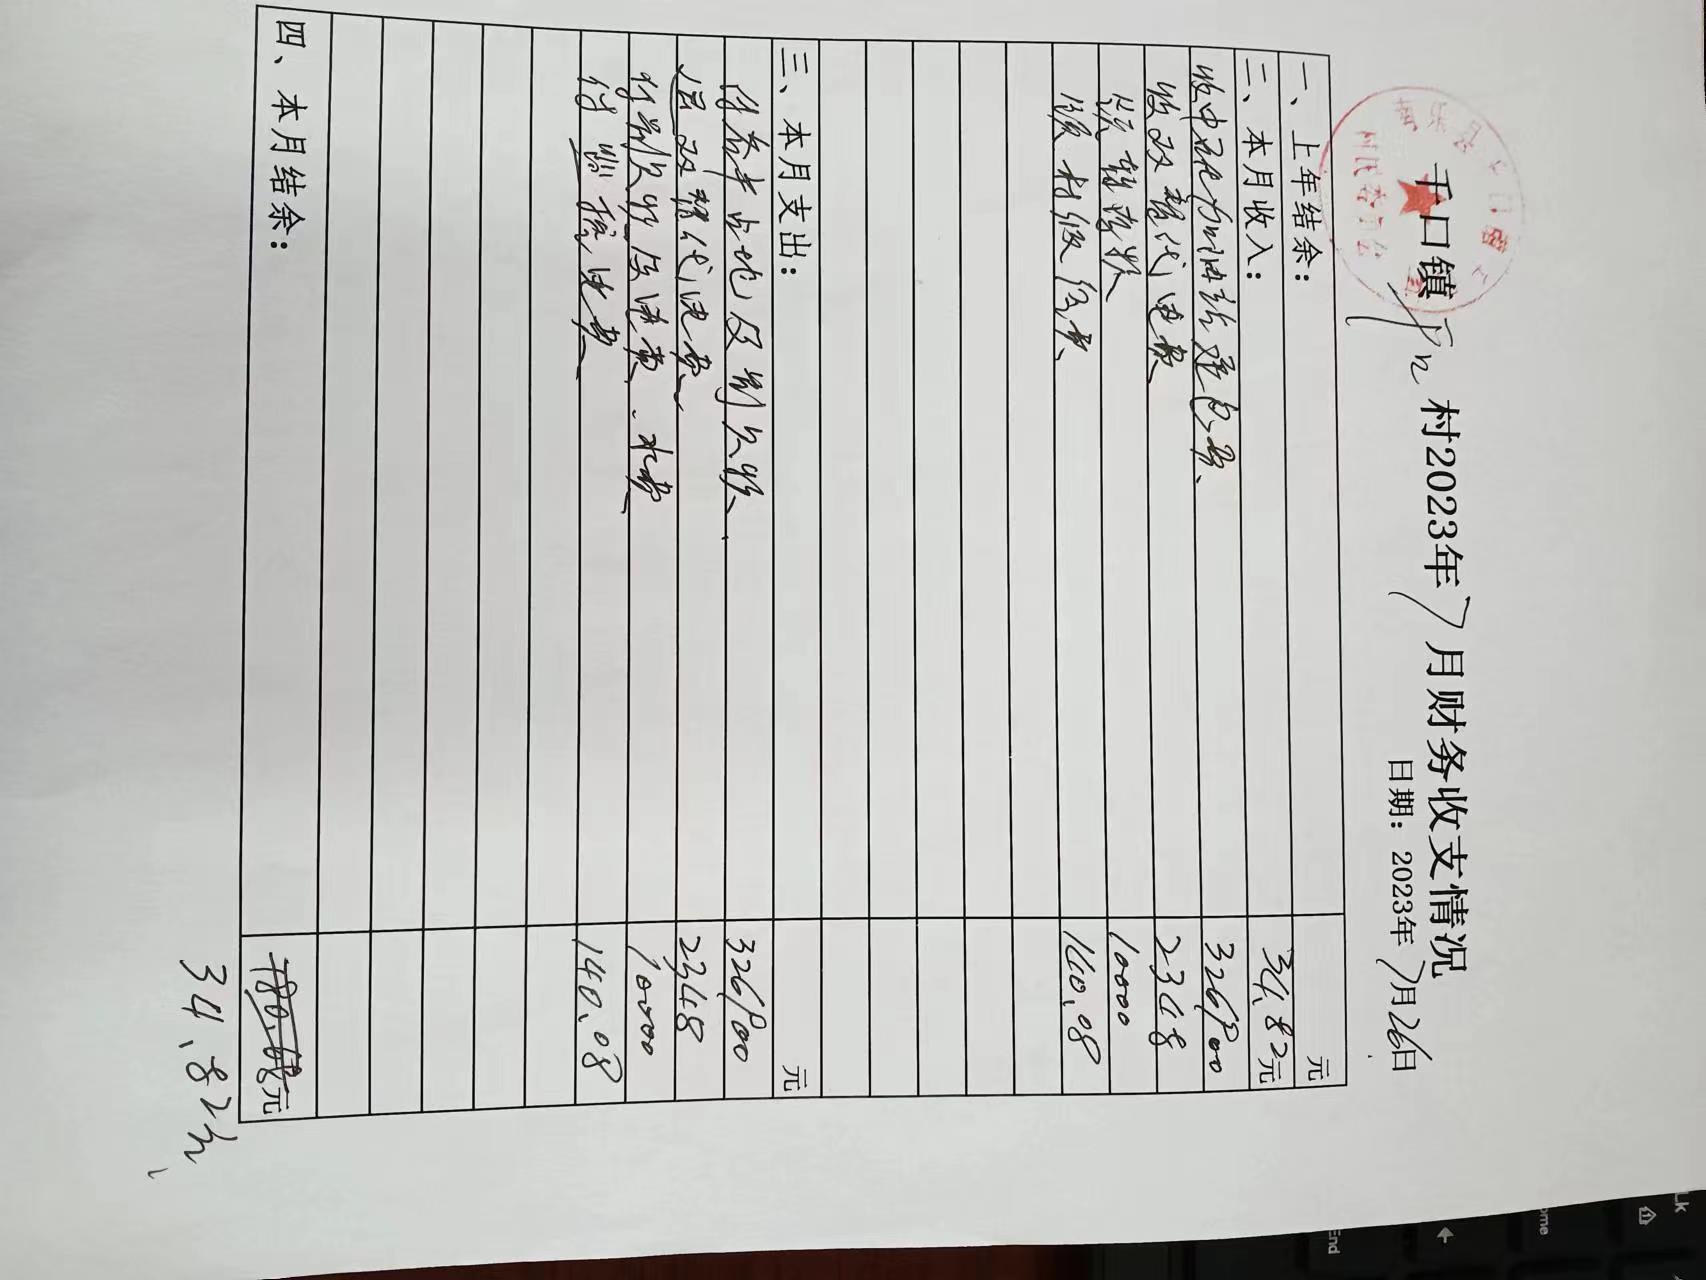 千口镇千口村2023年7月财务收支情况
日期：2023年7月26日
一、上年结余： 元
二、本月收入： 34.82元
收中石化加油站承包费、 326900
收双替代电费 2348
领暂存款 10000
领村级经费 140.08
三、本月支出： 元
付各户占地及别欠款、 326900
退双替代电费 2348
付别欠款及电费、水费 10000
付监控电费 140.08
四、本月结余： 180.68元
34.82元
Lk
ome
End